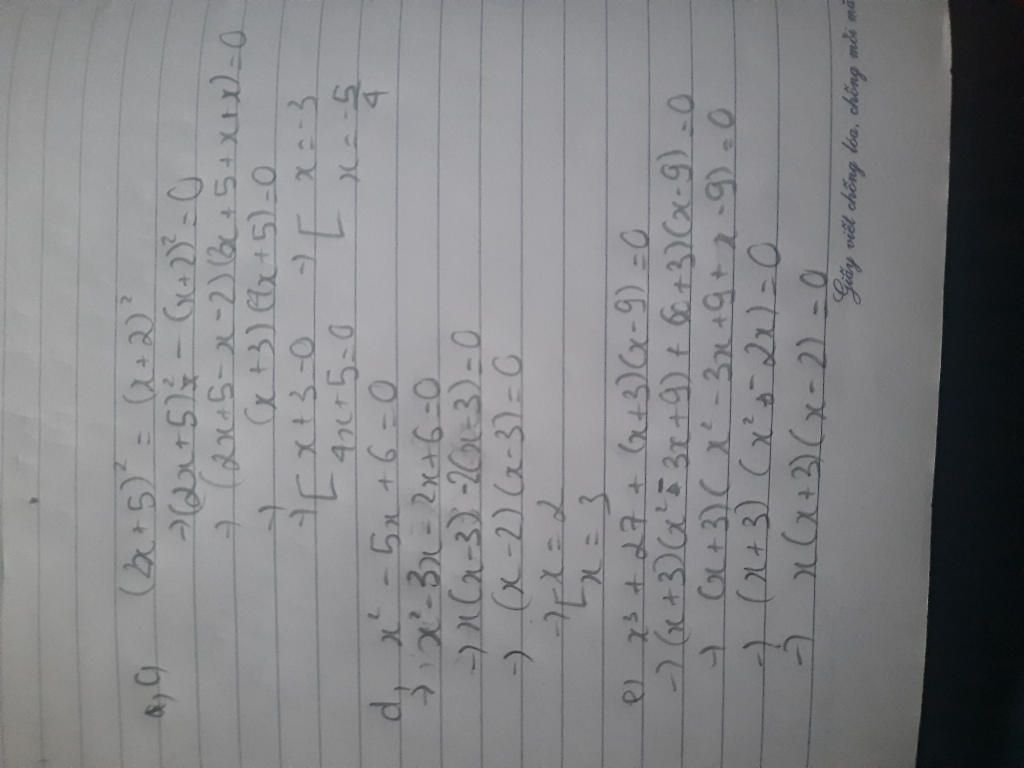 a, c) (2x+5)² = (x+2)²
→ (2x+5)² - (x+2)² = 0
→ (2x+5-x-2)(2x+5+x+x) = 0
→ (x+3)(4x+5) = 0
→ [ x+3=0 → [ x=-3
4x+5=0 x = -5/4
d, x² - 5x + 6 = 0
→ x² - 3x - 2x + 6 = 0
→ x(x-3) - 2(x-3) = 0
→ (x-2)(x-3) = 0
→ [ x = 2
x = 3
e) x³ + 27 + (x+3)(x-9) = 0
→ (x+3)(x² - 3x+9) + (x+3)(x-9) = 0
→ (x+3)(x² - 3x+9 + x-9) = 0
→ (x+3)(x² - 2x) = 0
→ x(x+3)(x-2) = 0
Giấy viết chống lóa, chống mỏi mắ